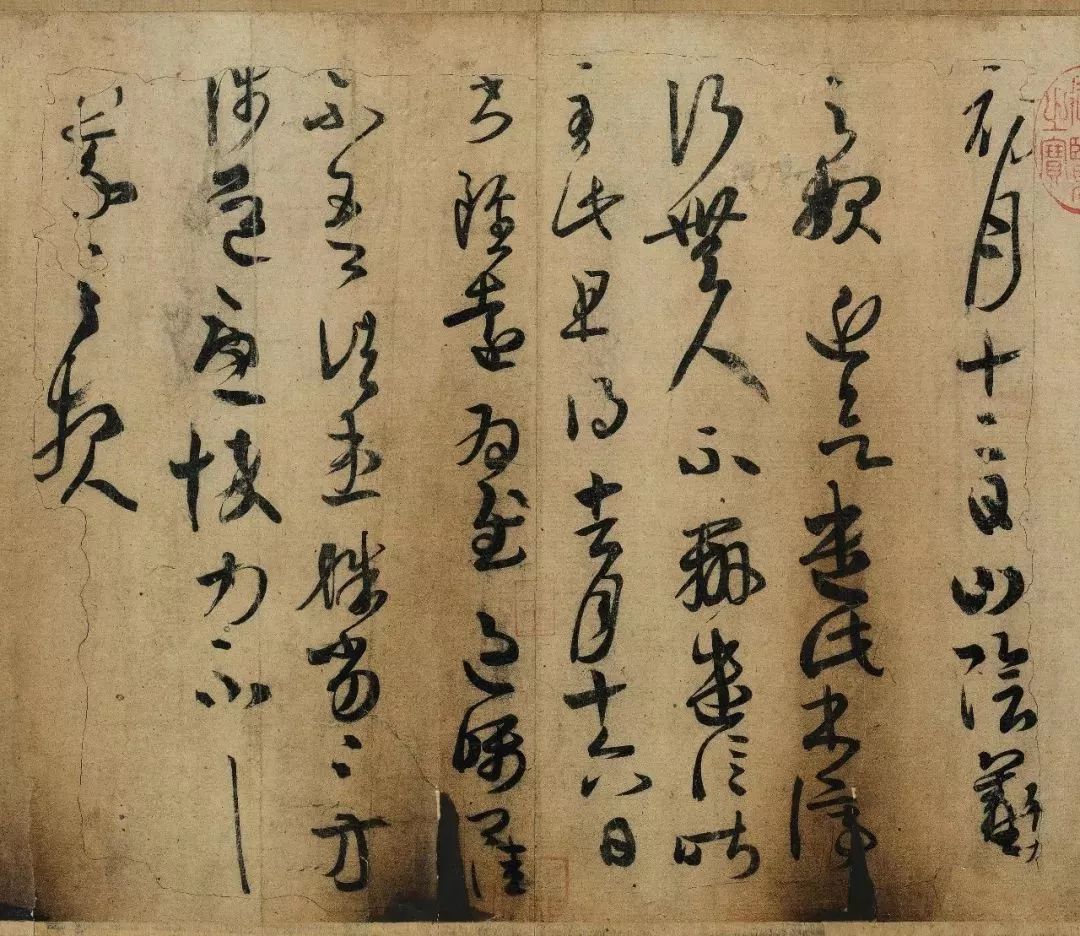 初月十二日山陰羲
之報近欲遣此書停
行無人不辦遣信昨
至此且得去月十六日
書雖遠為慰過囑卿佳
不吾諸患殆劣〻方
涉道憂悴力不具
羲之報
之寶